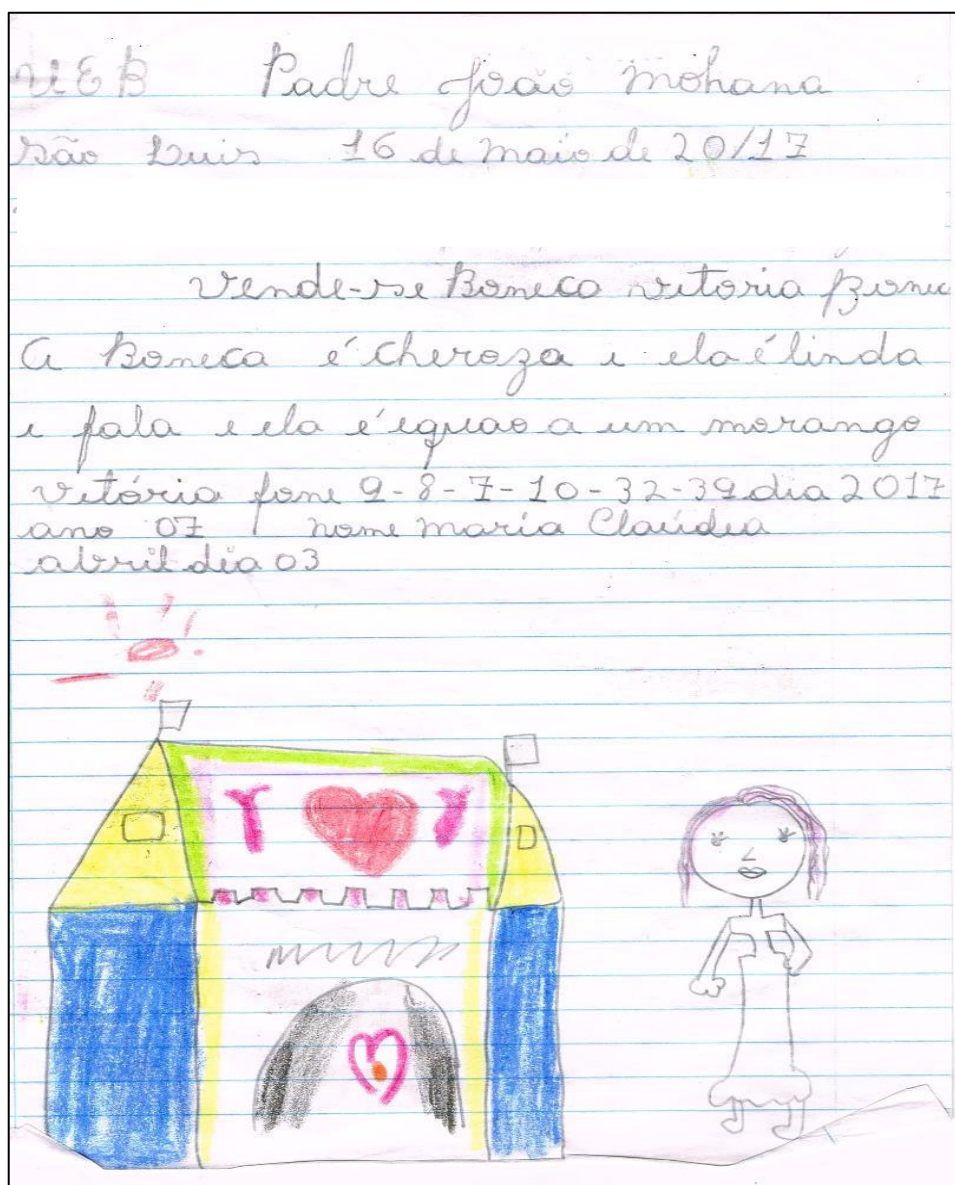 UEB Padre João Mohana
São Luis 16 de maio de 20/17
Vende-se Boneca vitoria
A Boneca é cheroza e ela é linda
e fala e ela é iguao a um morango
vitória fone 9-8-7-10-32-39 dia 2017
ano 07 nome maria Claúdia
abril dia 03